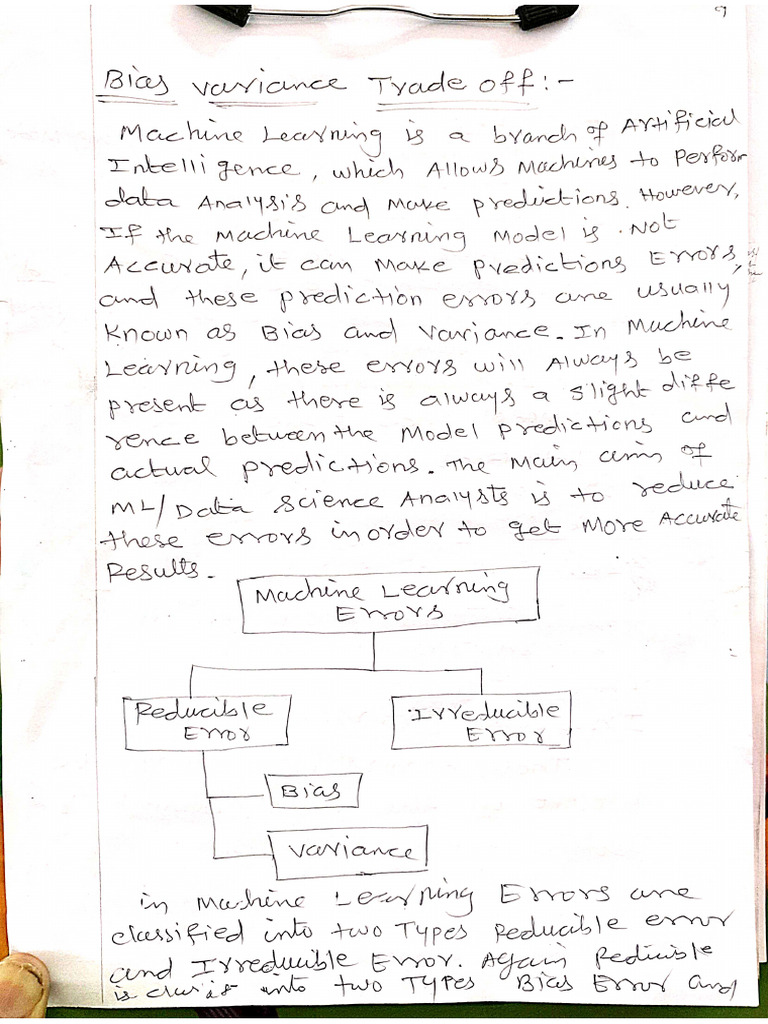 Bias Variance Trade off:-
Machine Learning is a branch of Artificial
Intelligence, which Allows Machines to Perform
data Analysis and Make predictions. However,
If the Machine Learning Model is Not
Accurate, it can Make predictions Errors,
and these prediction errors are usually
Known as Bias and Variance. In Machine
Learning, these errors will Always be
present as there is always a slight diffe
rence between the Model predictions and
actual predictions. The Main aim of
ML/Data Science Analysts is to reduce
these errors inorder to get More Accurate
Results.
Machine Learning
Errors
Reducible
Error
Irreducible
Error
Bias
Variance
in Machine Learning Errors are
classified into two Types Reducible error
and Irreducible Error. Again Reducible
is into two Types Bias Error and